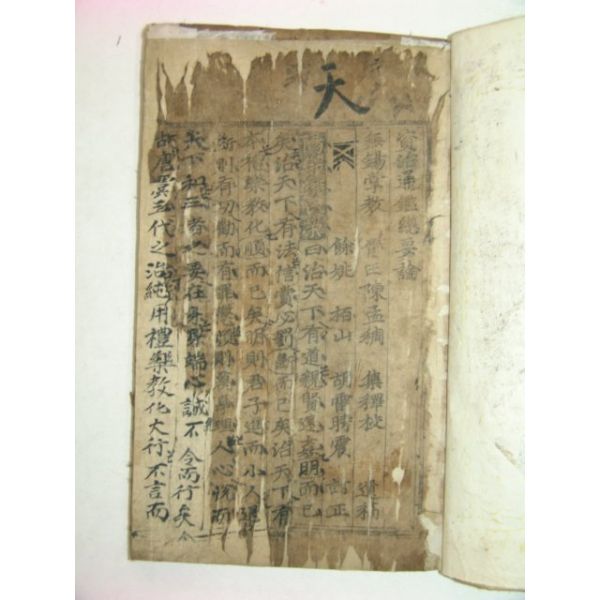 天
資治通鑑總要論
無錫常教 陳孟稠 集釋
餘姚 栢山 胡 震 訂正
曰治天下有道親賢遠嘉明而已
矣治天下有法信賞必罰斷而已矣治天下有
本禮樂教化順而已矣明則君子進而小人退
斷則有功勸而有罪懲順則萬事理人心悅而
天下和三者之要在身身端心誠不令而行矣
故唐虞三代之治純用禮樂教化大行不言而